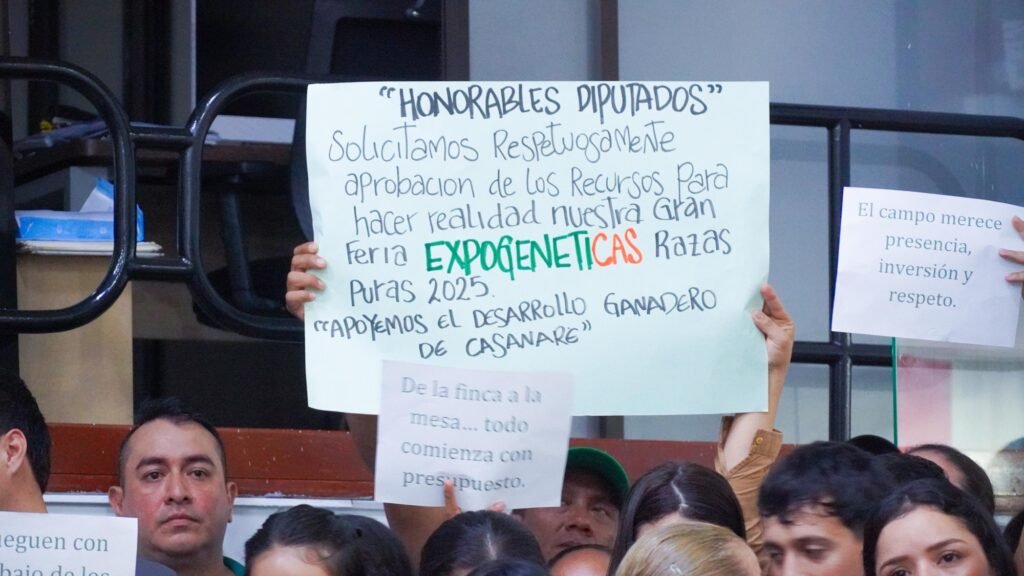 "HONORABLES DIPUTADOS"
Solicitamos Respetuosamente
aprobacion de los Recursos para
hacer realidad nuestra Gran
Feria EXPOGENETICAS Razas
Puras 2025.
"APOYEMOS EL DESARROLLO GANADERO
DE CASANARE"
De la finca a la
mesa... todo
comienza con
presupuesto.
El campo merece
presencia,
inversión y
respeto.
ueguen con
bajo de los